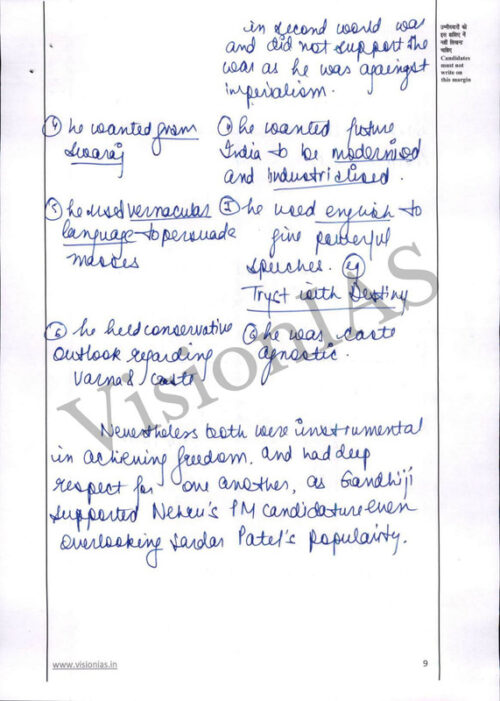 in second world war
and did not support the
war as he was againgst
imperialism.
उम्मीदवारों को
इस हाशिए में
नहीं लिखना
चाहिए
Candidates
must not
write on
this margin
④ he wanted gram
swaraj
④ he wanted future
India to be modernised
and industrialised.
⑤ he used vernacular
language to persuade
masses
⑤ he used english to
give powerful
speeches. eg
Tryst with Destiny
⑥ he held conservative
outlook regarding
varna & caste
⑥ he was caste
agnostic.
Nevertheless both were instrumental
in achieving freedom. and had deep
respect for one another, as Gandhiji
supported Nehru's PM candidature even
overlooking Sardar Patel's popularity.
VisionIAS
www.visionias.in
9